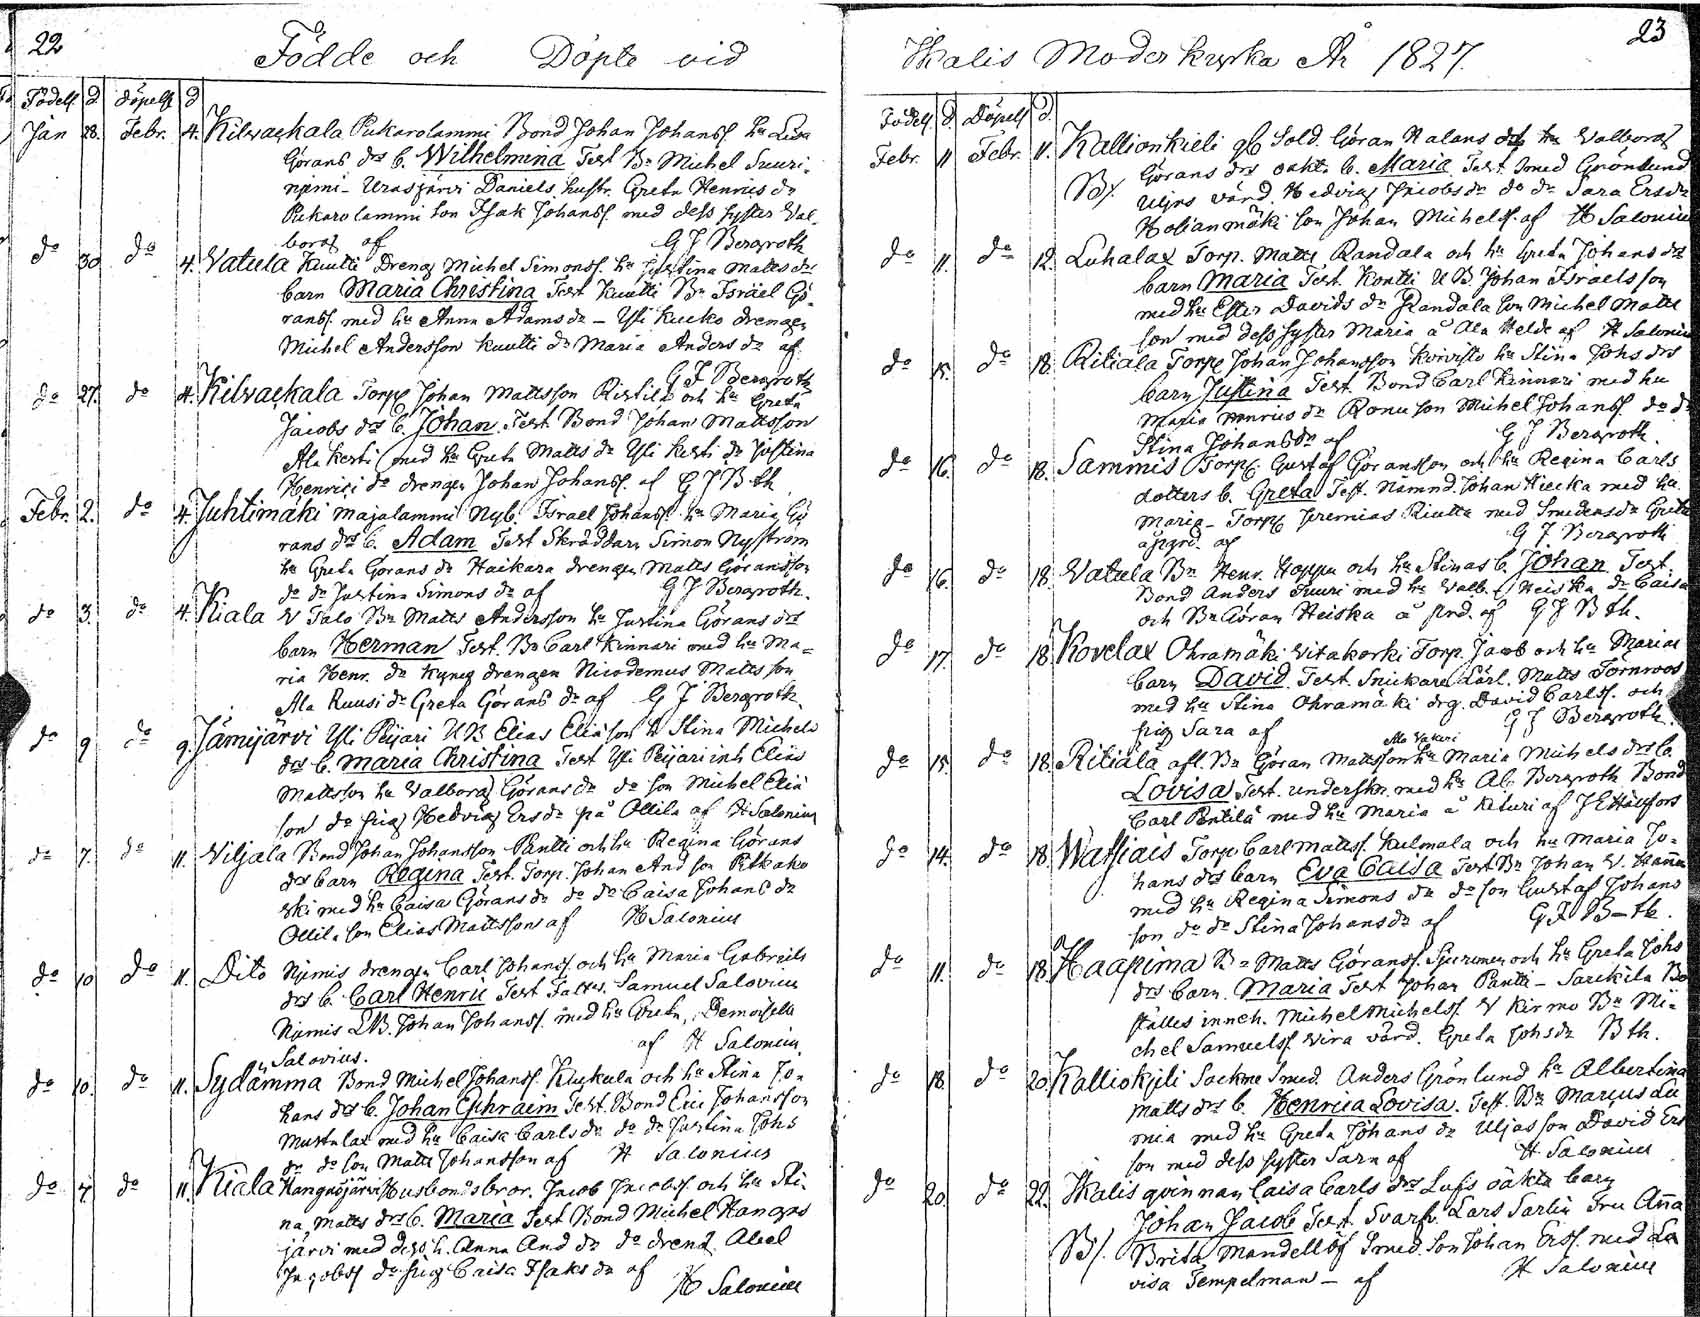 22
Födde och Döpte vid
Födels. d. döpels d
Jan 28. Febr. 4. Kilvackala Pukarolammi Bond Johan Johanss hu Lisa
Görans drs b. Wilhelmina Test Bn Michel Suuri-
njemi - Urasjärvi Daniels hustr. Greta Henrics dr
Pukarolammi son Isak Johanss. med dess syster Val-
borg af G J Bergroth
do 30 do 4. Vatula Kuutti Dreng Michel Simonss. hu Justina Matts drs
barn Maria Christina Test Kuutti Bn Israel Gö-
ranss. med hu Anna Adams dr - Yli Kucko drengen
Michel Andersson Kuutti dr Maria Anders dr af
G J Bergroth
do 27. do 4. Kilvackala Torp Johan Mattsson Ristilä och hu Greta
Jacobs drs b. Johan Test Bond Johan Mattsson
Ala Kerti med hu Greta Matts dr Yli Kerti dr Justina
Henrici dr drengen Johan Johanss. af G J Bth
Febr. 2. do 4. Juhtimäki Majalammi Nyb. Israel Johanss. hu Maria Gö
rans drs b. Adam Test Skräddarn Simon Nyström
hu Greta Görans dr Haikara drengen Matts Göransson
do dr Justina Simons dr af G J Bergroth.
do 3. do 4. Kiala V Talo Bn Matts Andersson hu Justina Görans drs
barn Herman Test. Bn Carl Kinnari med hu Ma=
ria Henr. dr Kyneg drengen Nicodemus Mattsson
Ala Ruusi dr Greta Görans dr af G J Bergroth.
do 9 do 9. Jämijärvi Yli Peijari UB Elias Eliasson h Stina Michels
drs b. Maria Christina Test Yli Peijari inh Elias
Mattsson hu Valborg Görans dr do son Michel Elia
son do pig Hedvig Ers dr på Ollila af H Salonius
do 7. do 11. Viljala Bond Johan Johansson Pantti och hu Regina Görans
drs barn Regina Test. Torp. Johan And son Pitkako
ski med hu Caisa Görans dr do dr Caisa Johans dr
Ollila son Elias Mattsson af H Salonius
do 10 do 11. Dito Njemis drengen Carl Johanss och hu Maria Gabriels
drs b. Carl Henric Test Faltv. Samuel Salovius
Njemis LB. Johan Johanss. med hu Greta, Demoiselle
Salovius. af H Salonius
do 10. do 11. Sydänmaa Bond Michel Johanss. Kyykula och hu Stina Jo-
hans drs b. Johan Ephraim Test. Bond Eric Johansson
Mustalax med hu Caisa Carls dr do dr Justina Johs
dr do son Matts Johansson af H Salonius
do 4. do 11. Kiala Kangasjärvi Husbonds bror. Jacob Jacobss och hu Sti-
na, Matts drs b. Maria Test Bond Michel Kangas
järvi med dess h. Anna And dr do dreng Abel
Jacobss do pig Caisa Isaks dr af
H Salonius
23
Ikalis Moderkyrka År 1827.
Födels. d. Döpels d.
Febr. 11 Febr. 11. Kallionkieli qb Sold. Göran Nalans hu Valborg
Bs. Görans drs oäkta b. Maria Test Smed Grönlund
Uljas värd. Hedvig Jacobs dr do dr Sara Ers dr
Holianmäki son Johan Michelss. af H Salonius
do 11. do 12. Luhalax Torp. Matts Randala och hu Greta Johans drs
barn Maria Test. Kontti UB Johan Israelsson
med hu Ester Davids dr Randala son Michel Matts
son med dess syster Maria å Ala Helde af H Salonius
do 15. do 18. Ritiala Torp Johan Johansson Koivisto hu Stina Johs drs
barn Justina Test. Bond Carl Kinnari med hu
Maria Henrics dr Ronu son Michel Johanss do dr
Stina Johans dr af G J Bergroth.
do 16. do 18. Sammis Torp. Gustaf Göransson och hu Regina Carls
dotters b. Greta Test. Nämnd. Johan Hiecka med hu
Maria - Torp Jeremias Riutta med Smedens dr Greta
af G J Bergroth
do 16. do 18. Vatula Bn Henr. Hoppu och hu Stinas b. Johan Test.
Bond Anders Suuri med hu Valb. Heiska dr Caisa
och Bn Göran Heiska å Bnd. af G J Bth.
do 17. do 18. Kovelax Ohramäki Vitakorki Torp. Jacob och hu Marias
barn David Test. Snickare Lärl. Matts Törnroos
med hu Stina Ohramäki drg. David Carlss. och
pig Sara af G J Bergroth.
do 15. do 18. Ritiala afl. Bn Göran Mattsson hu Maria Michels drs b.
Lovisa Test. underskr. med hu Al. Bergroth Bond
Carl Pentilä med hu Maria å Keturi af J E Hällfors
do 14. do 18. Watsiais Torp Carl Mattss. Kulmala och hu Maria Jo-
hans drs barn Eva Caisa Test Bn Johan V. Hannu
med hu Regina Simons dr do son Gustaf Johans
son do dr Stina Johans dr af G J B-th.
do 11. do 18. Haapima Bn Matts Göranss. Sjurinen och hu Greta Johs
drs barn. Maria Test Johan Pantti - Sarikila Bo
ställes inneh. Michel Michelss. V Kirmo Bn Mi-
chel Samuelss. Vira värd. Greta Johs dr Bth.
do 18. do 20. Kalliokjeli Sockne Smed. Anders Grönlund hu Albertina
Matts drs b. Henrica Lovisa. Test. Bn Marcus La
mia med hu Greta Johans dr Uljas son David Ers
son med dess syster Sara af H Salonius
do 20. do 22. Ikalis qvinnan Caisa Carls drs Lofs oäkta barn
Johan Jacob Test. Svarfv. Lars Sarlin Fru Anna
Bs. Brita Mandellöf Smed. Son Johan Erss. med Lo
visa Tempelman - af H Salonius